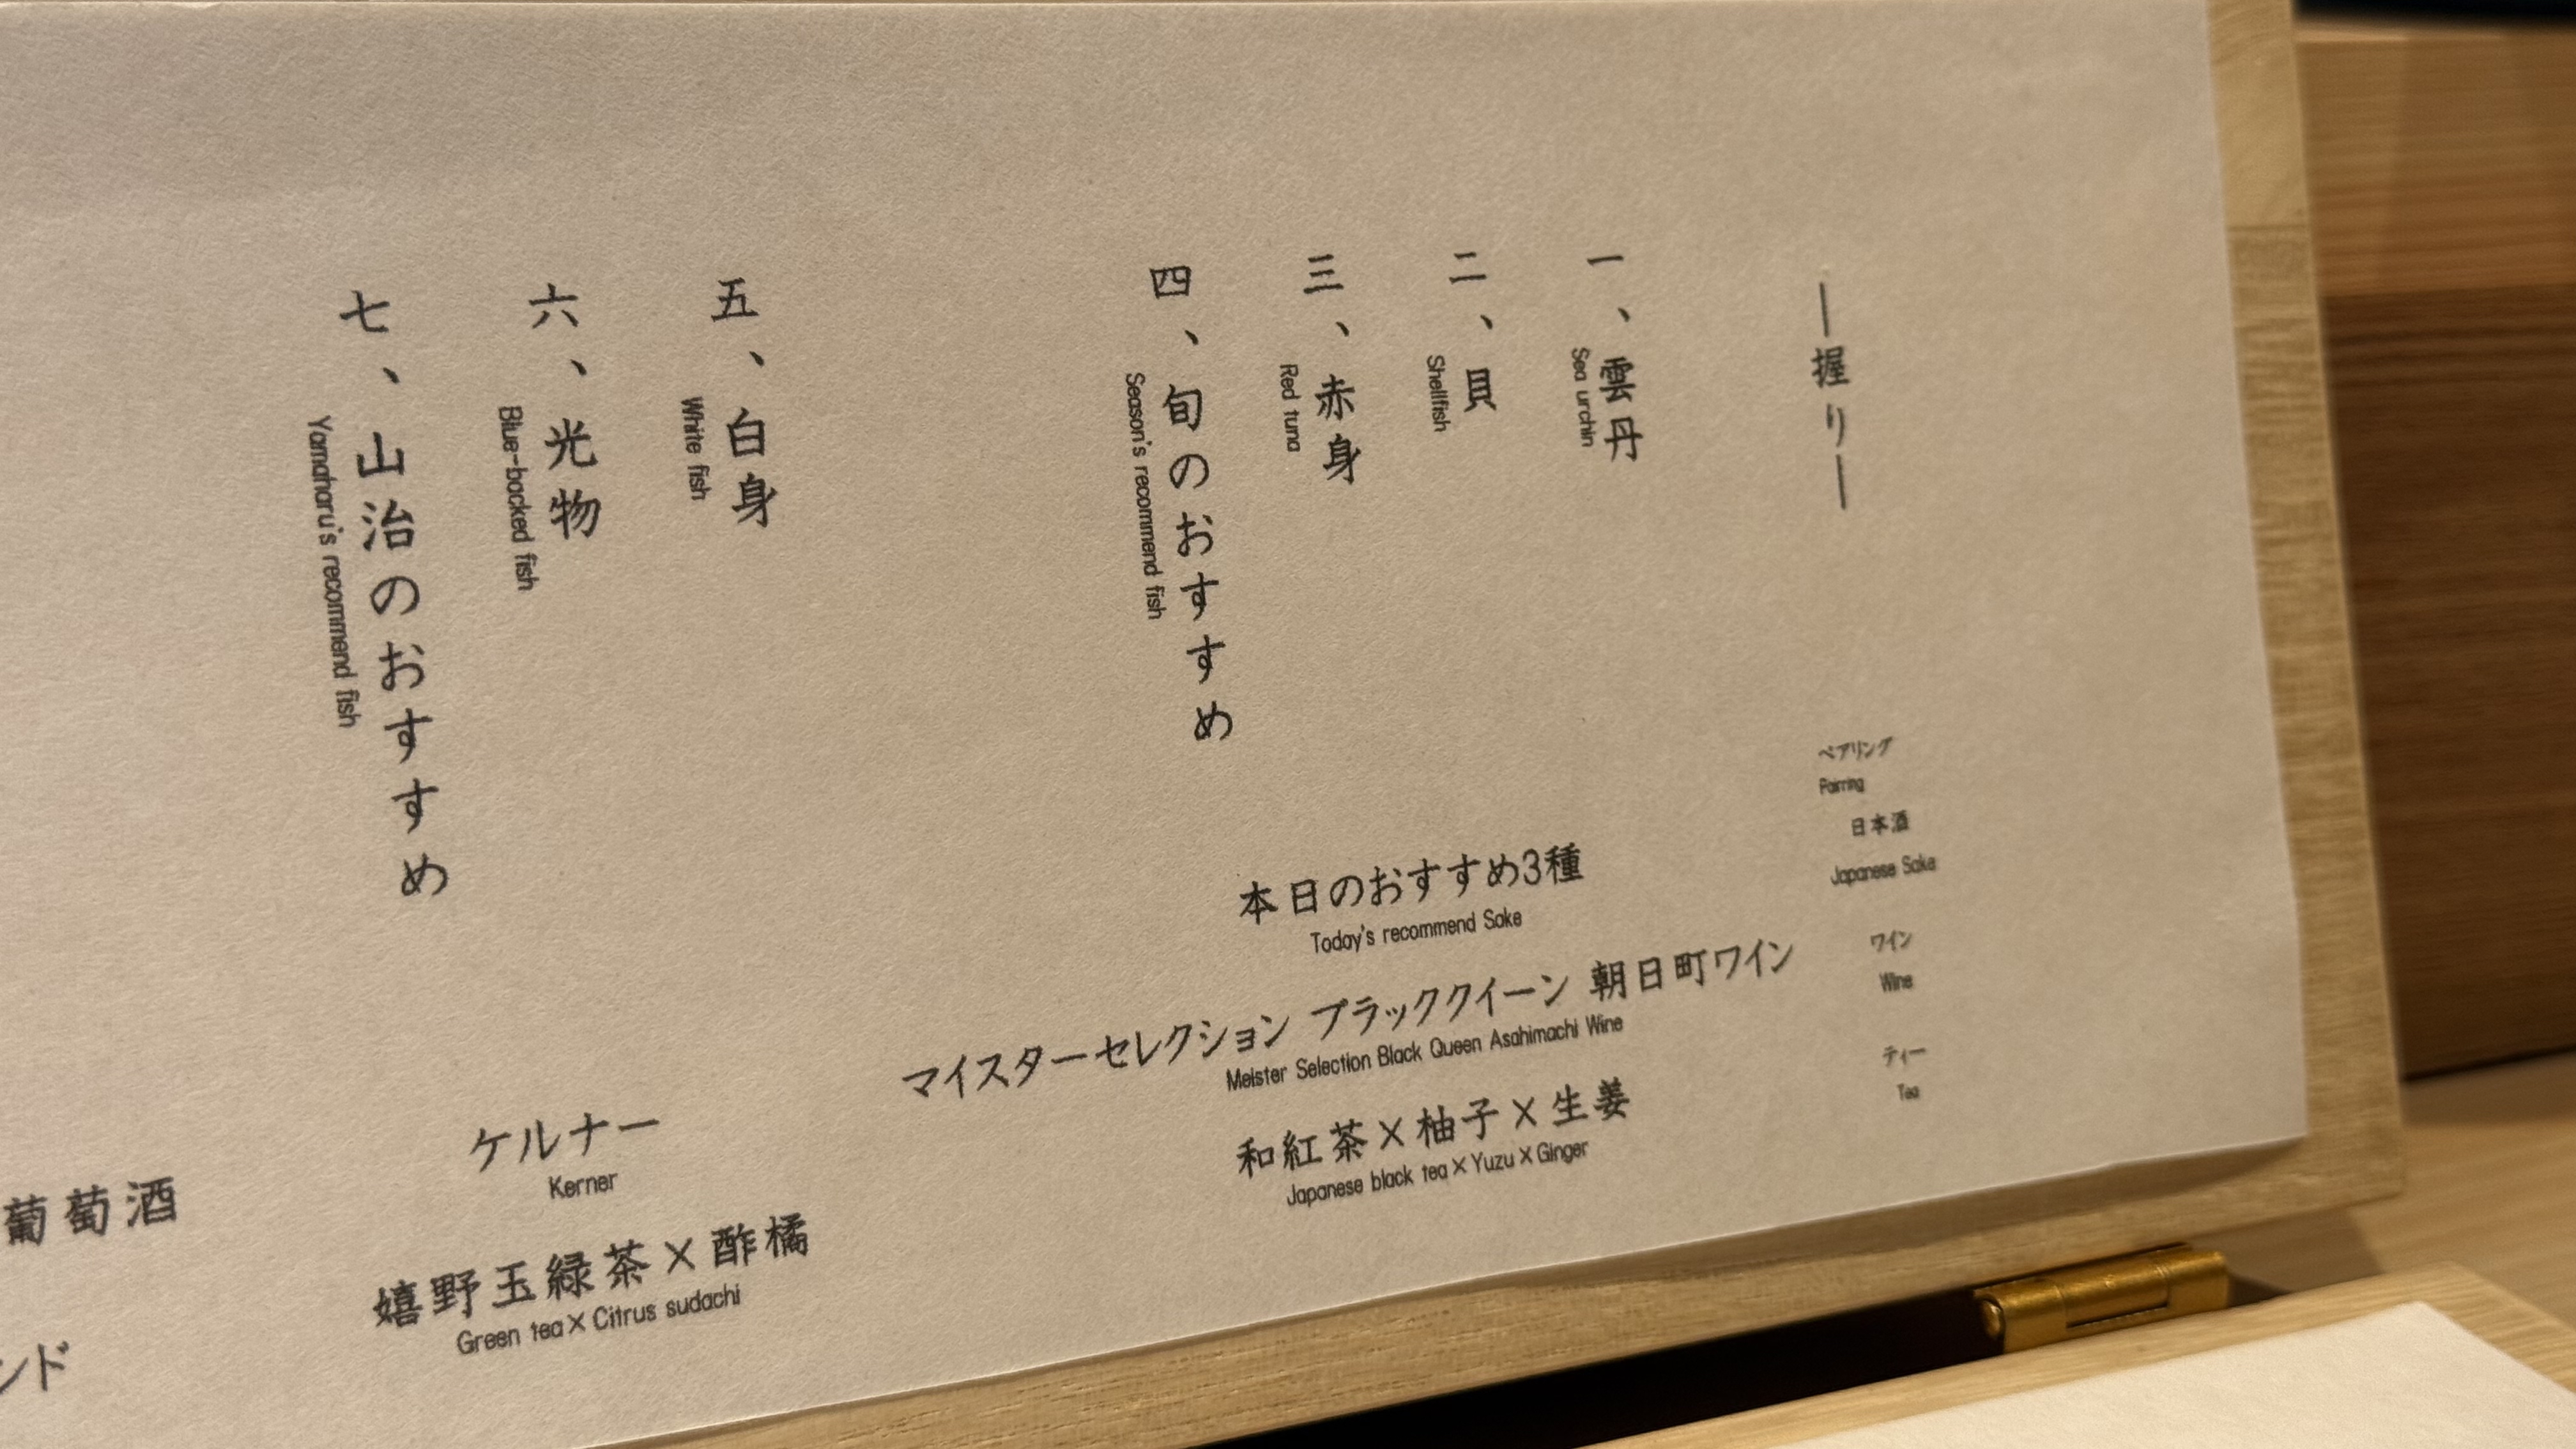 ―握り―
一、雲丹
Sea urchin
二、貝
Shellfish
三、赤身
Red tuna
四、旬のおすすめ
Season's recommend fish
五、白身
White fish
六、光物
Blue-backed fish
七、山治のおすすめ
Yamaharu's recommend fish
ペアリング
Pairring
日本酒
Japanese Sake
本日のおすすめ3種
Today's recommend Sake
ワイン
Wine
マイスターセレクション ブラッククイーン 朝日町ワイン
Meister Selection Black Queen Asahimachi Wine
ケルナー
Kerner
葡萄酒
ティー
Tea
和紅茶×柚子×生姜
Japanese black tea×Yuzu×Ginger
嬉野玉緑茶×酢橘
Green tea×Citrus sudachi
ンド